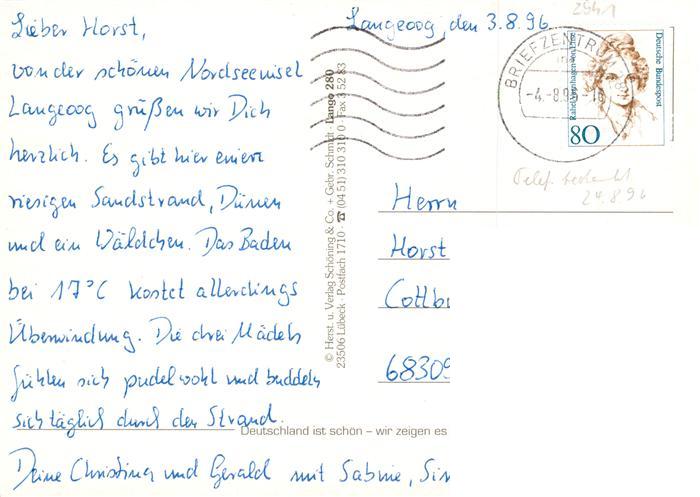 Langeoog, den 3.8.96
Lieber Horst,
von der schönen Nordseeinsel
Langeoog grüßen wir Dich
herzlich. Es gibt hier einen
riesigen Sandstrand, Dünen
und ein Wäldchen. Das Baden
bei 17°C kostet allerdings
Überwindung. Die drei Mädels
fühlen sich pudelwohl und buddeln
sich täglich durch den Strand.
Deine Christina und Gerald mit Sabine, Sin
© Herst. u. Verlag Schöning & Co. + Gebr. Schmidt · Lango 280
23506 Lübeck · Postfach 1710 · ☎ (04 51) 310 310 0 · Fax 3 52 83
Deutschland ist schön – wir zeigen es
2941
BRIEFZENTRUM
-4.-8.96-18
Deutsche Bundespost
80
Telef. bedankt
24.8.96
Herrn
Horst
Cottb
68309